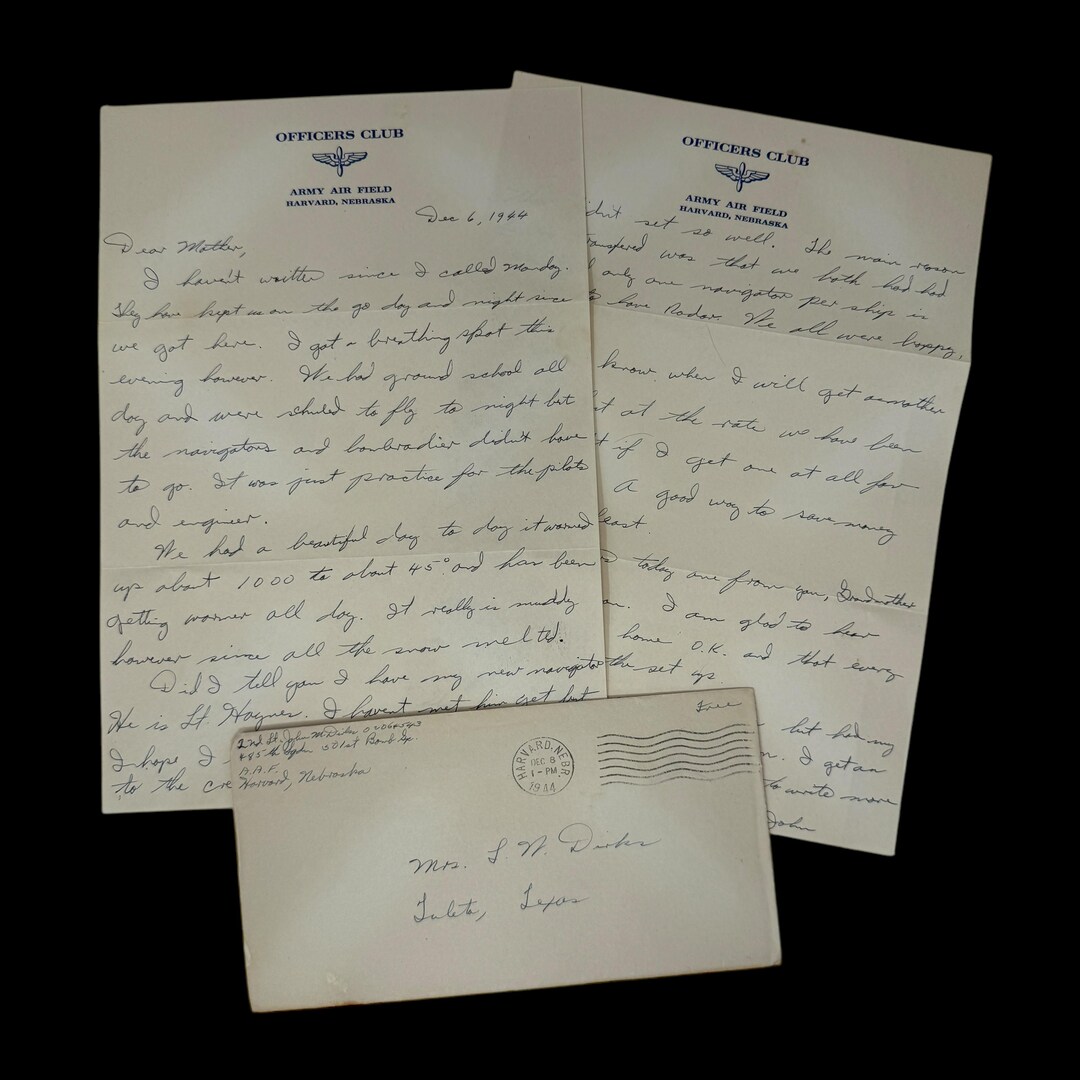 OFFICERS CLUB
ARMY AIR FIELD
HARVARD, NEBRASKA
Dec 6, 1944
Dear Mother,
I haven't written since I called Monday.
They have kept us on the go day and night since
we got here. I got a breathing spot this
evening however. We had ground school all
day and were shuled to fly to night but
the navigators and bombradier didn't have
to go. It was just practice for the pilots
and engineer.
We had a beautiful day to day it warmed
up about 1000 to about 45° and has been
getting warmer all day. It really is muddy
however since all the snow melted.
Did I tell you I have my new navigator
He is Lt. Haynes. I havent met him yet but
I hope I
to the cre
OFFICERS CLUB
ARMY AIR FIELD
HARVARD, NEBRASKA
didn't set so well. The main reson
transfered was that we both had had
only one navigator per ship is
to have Radar. We all were happy,
know when I will get another
at the rate we have been
if I get one at all for
A good way to save money
least.
today one from you, Grandmother
I am glad to hear
home O.K. and that every
the set up
but had my
I get an
to write more
John
2nd Lt. John M. Dirks
501st Bomb Gp.
A.A.F.
Harvard, Nebraska
Free
HARVARD, NEBR.
DEC 8
1-PM
1944
Mrs. L. W. Dirks
Tuleta, Texas